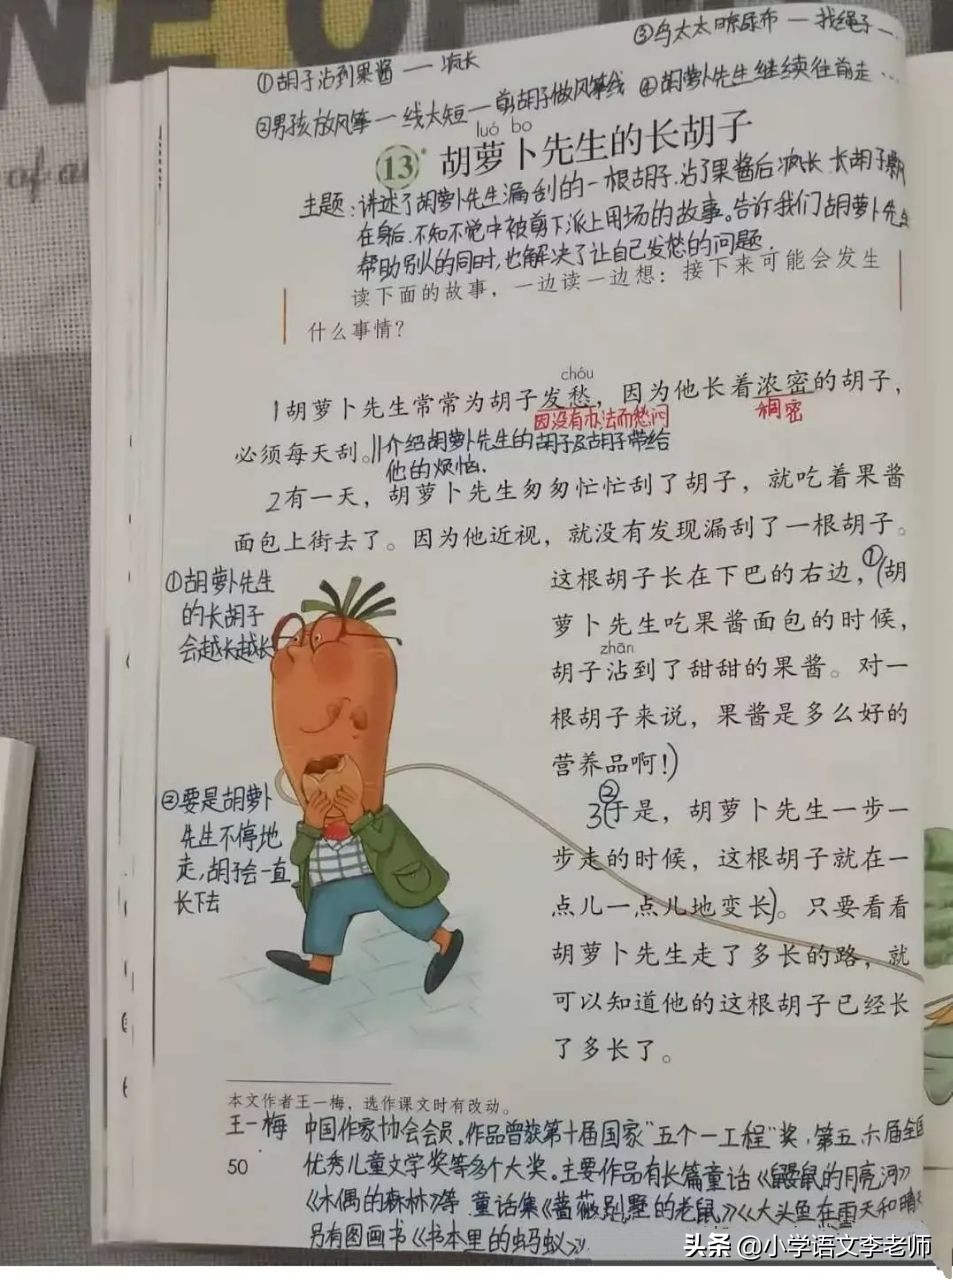 NE OF
of a
③乌太太晾尿布 — 找绳子 —
①胡子沾到果酱 — 疯长
④胡萝卜先生继续往前走 …
②男孩放风筝 — 线太短 — 剪胡子做风筝线
luó bo
13* 胡萝卜先生的长胡子
主题:讲述了胡萝卜先生漏刮的一根胡子,沾了果酱后疯长,长胡子飘
在身后,不知不觉中被剪下派上用场的故事。告诉我们胡萝卜先生
帮助别人的同时,也解决了让自己发愁的问题.
读下面的故事,一边读一边想:接下来可能会发生
什么事情?
chóu
1胡萝卜先生常常为胡子发愁,因为他长着浓密的胡子,
因没有办法而愁闷
稠密
必须每天刮。‖介绍胡萝卜先生的胡子及胡子带给
他的烦恼.
2有一天,胡萝卜先生匆匆忙忙刮了胡子,就吃着果酱
面包上街去了。因为他近视,就没有发现漏刮了一根胡子。
这根胡子长在下巴的右边,①(胡
萝卜先生吃果酱面包的时候,
zhān
胡子沾到了甜甜的果酱。对一
根胡子来说,果酱是多么好的
营养品啊!)
①胡萝卜先生
的长胡子
会越长越长
②
3(于是,胡萝卜先生一步一
步走的时候,这根胡子就在一
点儿一点儿地变长)。只要看看
胡萝卜先生走了多长的路,就
可以知道他的这根胡子已经长
了多长了。
②要是胡萝卜
先生不停地
走,胡子会一直
长下去
本文作者王一梅,选作课文时有改动。
王一梅 中国作家协会会员.作品曾获第十届国家"五个一工程"奖,第五、六届全国
50
优秀儿童文学奖等多个大奖.主要作品有长篇童话《鼹鼠的月亮河》
《木偶的森林》等 童话集《蔷薇别墅的老鼠》《大头鱼在雨天和晴
另有图画书《书本里的蚂蚁》.
头条 @小学语文李老师